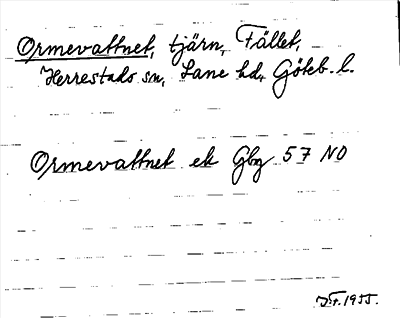 Ormevattnet, tjärn, Fället,
Herrestads sn, Lane hd, Göteb. l.
Ormevattnet ek Gbg 57 NO
1955.